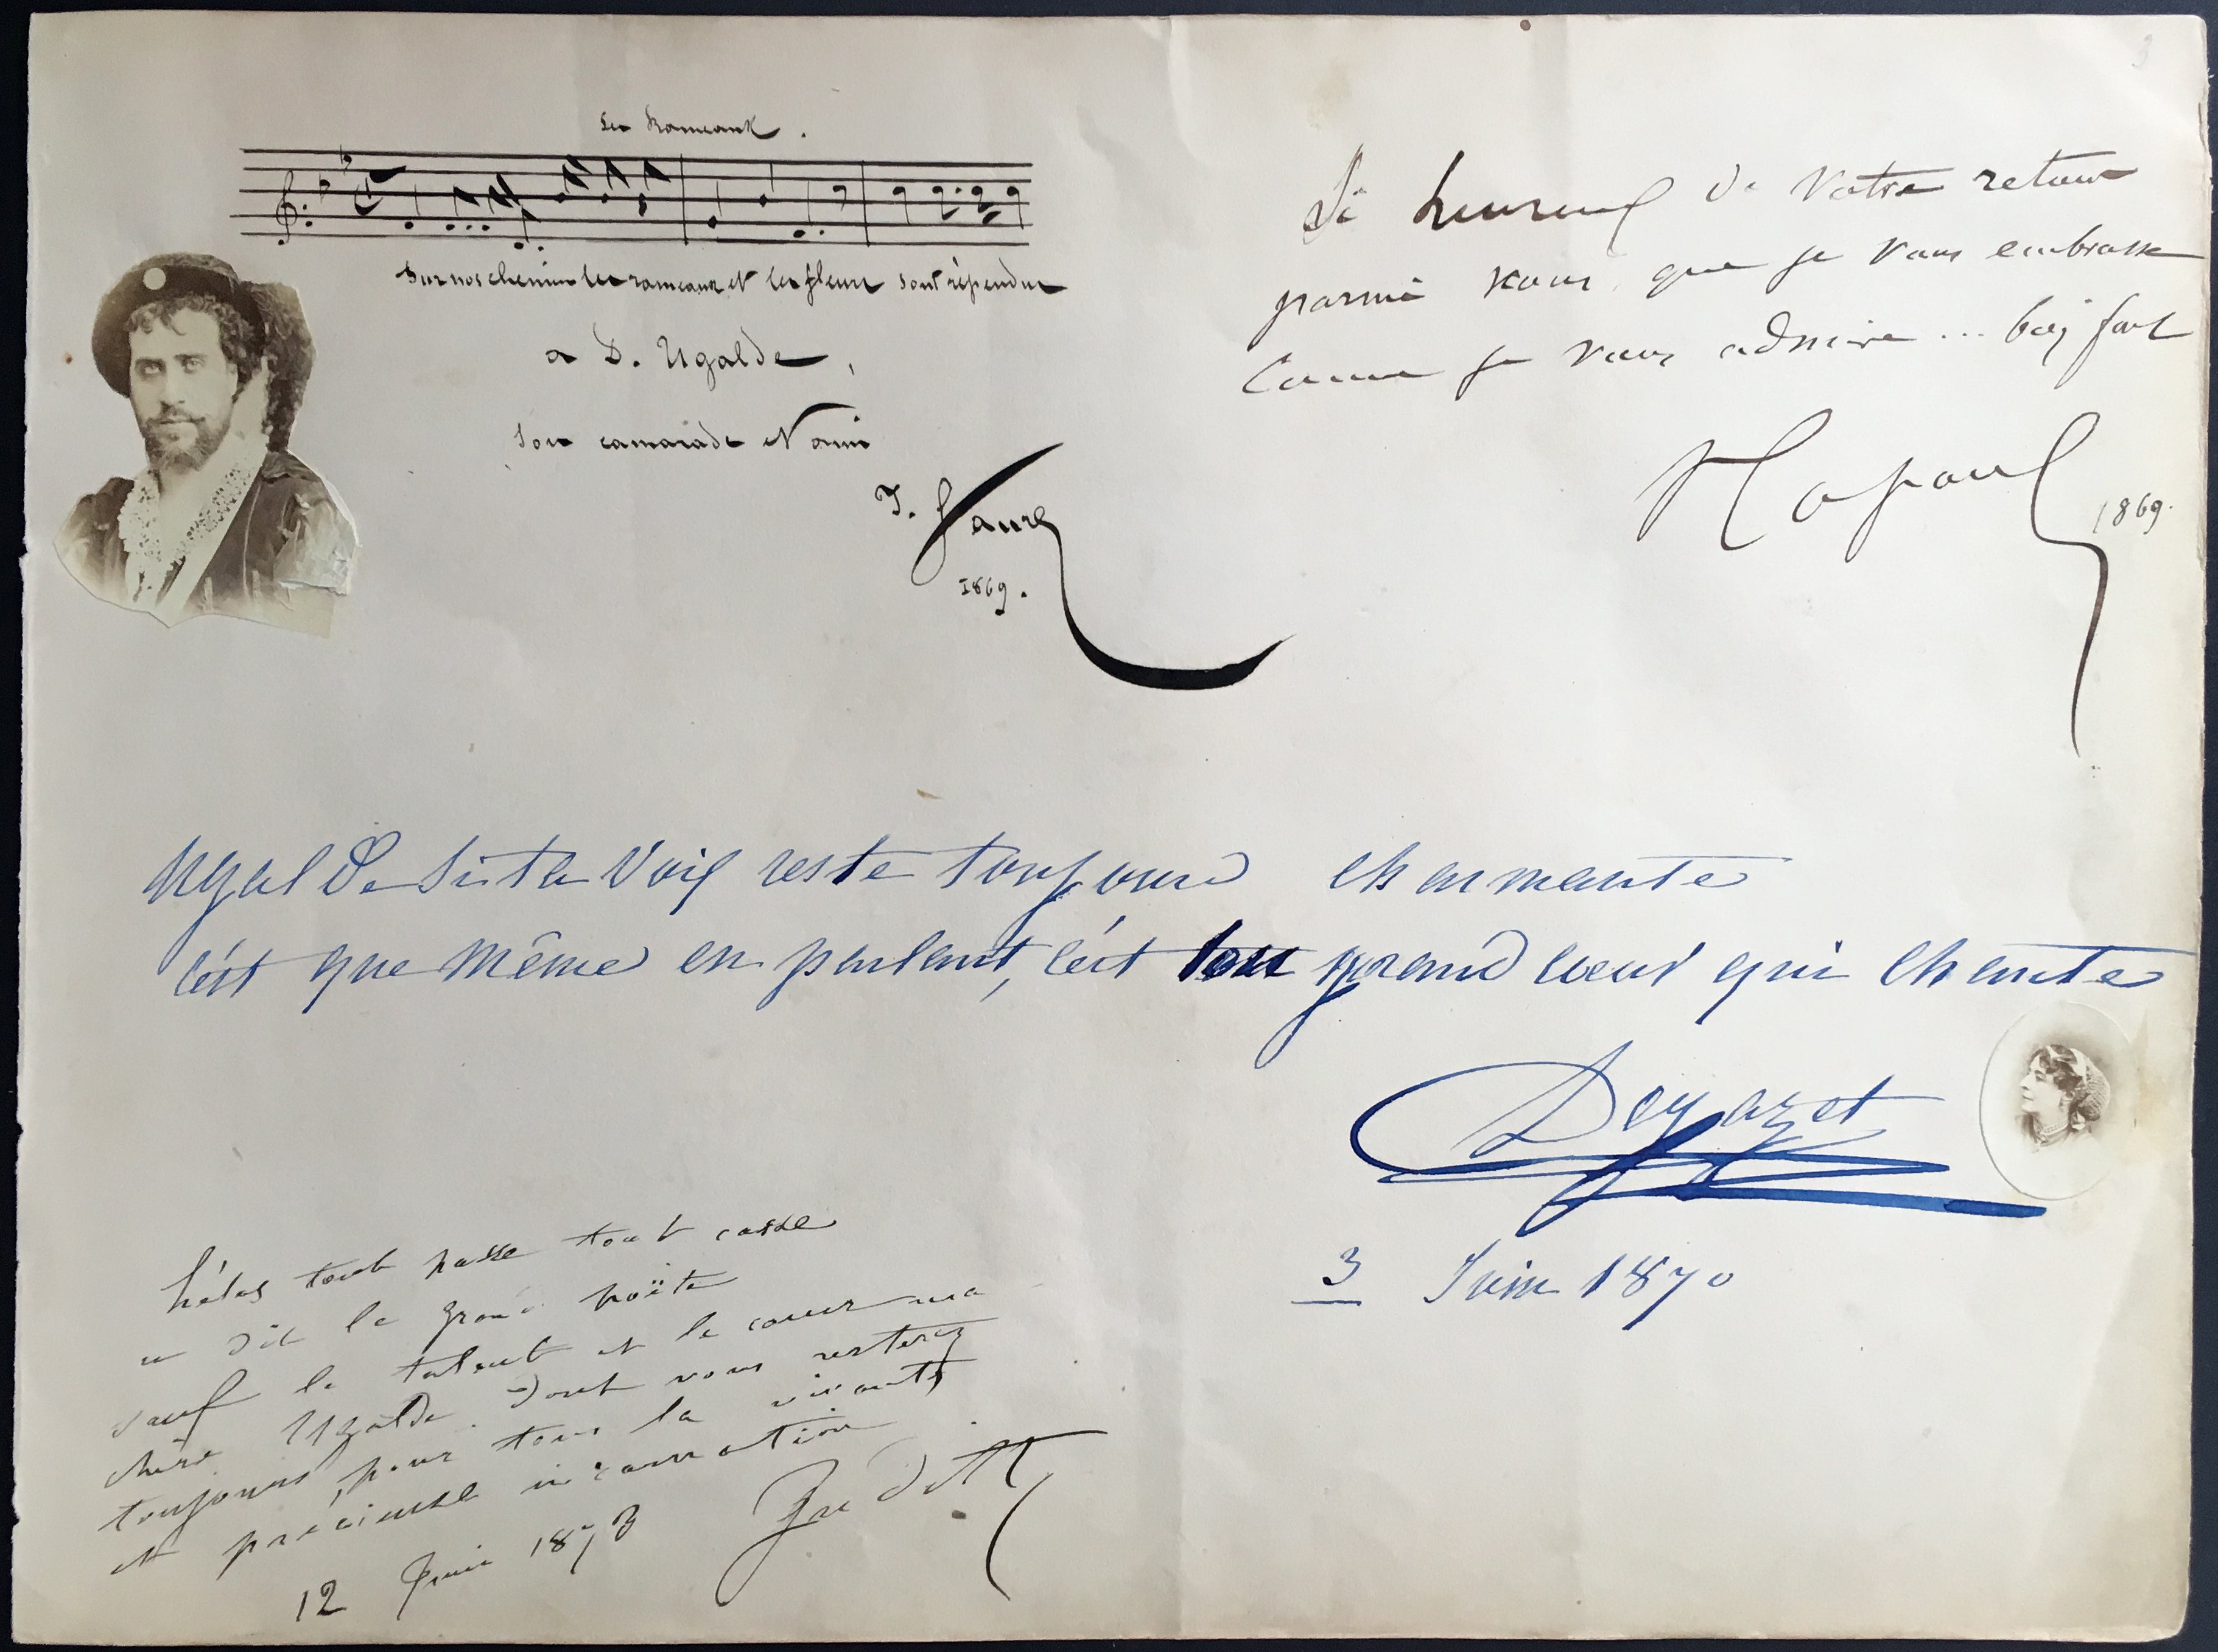 Les Rameaux.
Sur nos chemins les rameaux et les fleurs sont répendus
a D. Ugalde,
Son camarade et ami
J. Faure
1869.
3
Si heureux de votre retour
parmi nous, que je vous embrasse
Comme je vous admire ... fort
1869.
Ugalde Si ta Voix reste toujours charmante
c'est que même en parlant, c'est ton grand coeur qui chante
Dejazet
3 Juin 1870
hélas tout passe tout casse
a dit le grand poëte
sauf le talent et le coeur ma
chère Ugalde. Dont vous resterez
toujours, pour tous la vivante
et précieuse incarnation
12 Juin 1873